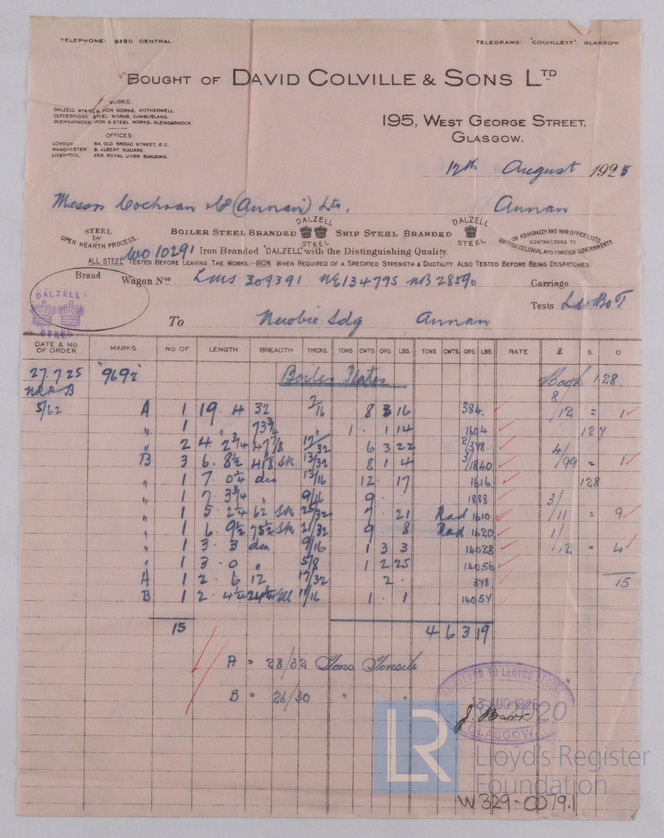 TELEPHONE: 3280 CENTRAL.
TELEGRAMS: "COLVILLEST", GLASGOW.
BOUGHT OF DAVID COLVILLE & SONS LTD
WORKS:
DALZELL STEEL & IRON WORKS, MOTHERWELL.
CLYDEBRIDGE STEEL WORKS, CAMBUSLANG.
GLENGARNOCK IRON & STEEL WORKS, GLENGARNOCK.
OFFICES:
LONDON 54, OLD BROAD STREET, E.C.
MANCHESTER 9, ALBERT SQUARE.
LIVERPOOL ROYAL LIVER BUILDING.
195, WEST GEORGE STREET,
GLASGOW.
12th August 1925
Messrs Cochran & Co (Annan) Ltd, Annan
STEEL by OPEN HEARTH PROCESS.
BOILER STEEL BRANDED DALZELL STEEL SHIP STEEL BRANDED DALZELL STEEL
ON ADMIRALTY AND WAR OFFICE LISTS
CONTRACTORS TO
BRITISH COLONIAL AND FOREIGN GOVERNMENTS.
WO 10291 Iron Branded "DALZELL" with the Distinguishing Quality.
ALL STEEL TESTED BEFORE LEAVING THE WORKS.—IRON WHEN REQUIRED OF A SPECIFIED STRENGTH & DUCTILITY ALSO TESTED BEFORE BEING DESPATCHED.
Brand Wagon Nos LMS 309391 NE134795 NB 28590 Carriage
DALZELL STEEL
Tests Ld. BoT
To Newbie Sdg Annan
DATE & NO. OF ORDER MARKS NO OF LENGTH BREADTH THICKS TONS CWTS QRS LBS. TONS CWTS QRS LBS RATE £ S D
27.7.25 "9692" Boiler Plates 128.
5/62 A 1 19. 4 32 8 3 16 384. 1
" 1 " 73¾ 1 . 1 14 1604 127
" 2 4 2¾ 47⅞ 17/32 6 3 22
B 3 6. 8½ 13/32 8 1 4 1840 1
" 1 7 0¼ dia 13/16 12. 17 1616 128
" 1 7 3¾ " 9/16 9 1888 3/
" 1 5 2¼ 62 Sk 25/32 7 . 21 Rad 1610 /11 = 9
" 1 6. 9½ 75½ Sk 21/32 9 . 8 Rad 1620 1/
" 1 3. 3 dia 9/16 1 3 3 14028 /12 = 4
" 1 3. 0 " 5/8 1 2 25 14056
A 1 2. 6 12 17/32 2 . 378 15
B 1 2. 11/16 1 . 1 14057
15 4 6 3 19
A = 28/32 Tons Tensile
B = 26/30 " "
SURVEYOR TO LLOYD'S REGISTER
13 AUG 1925
GLASGOW
J. Barr
2020
LR
Lloyd's Register
Foundation
W329-0079.1